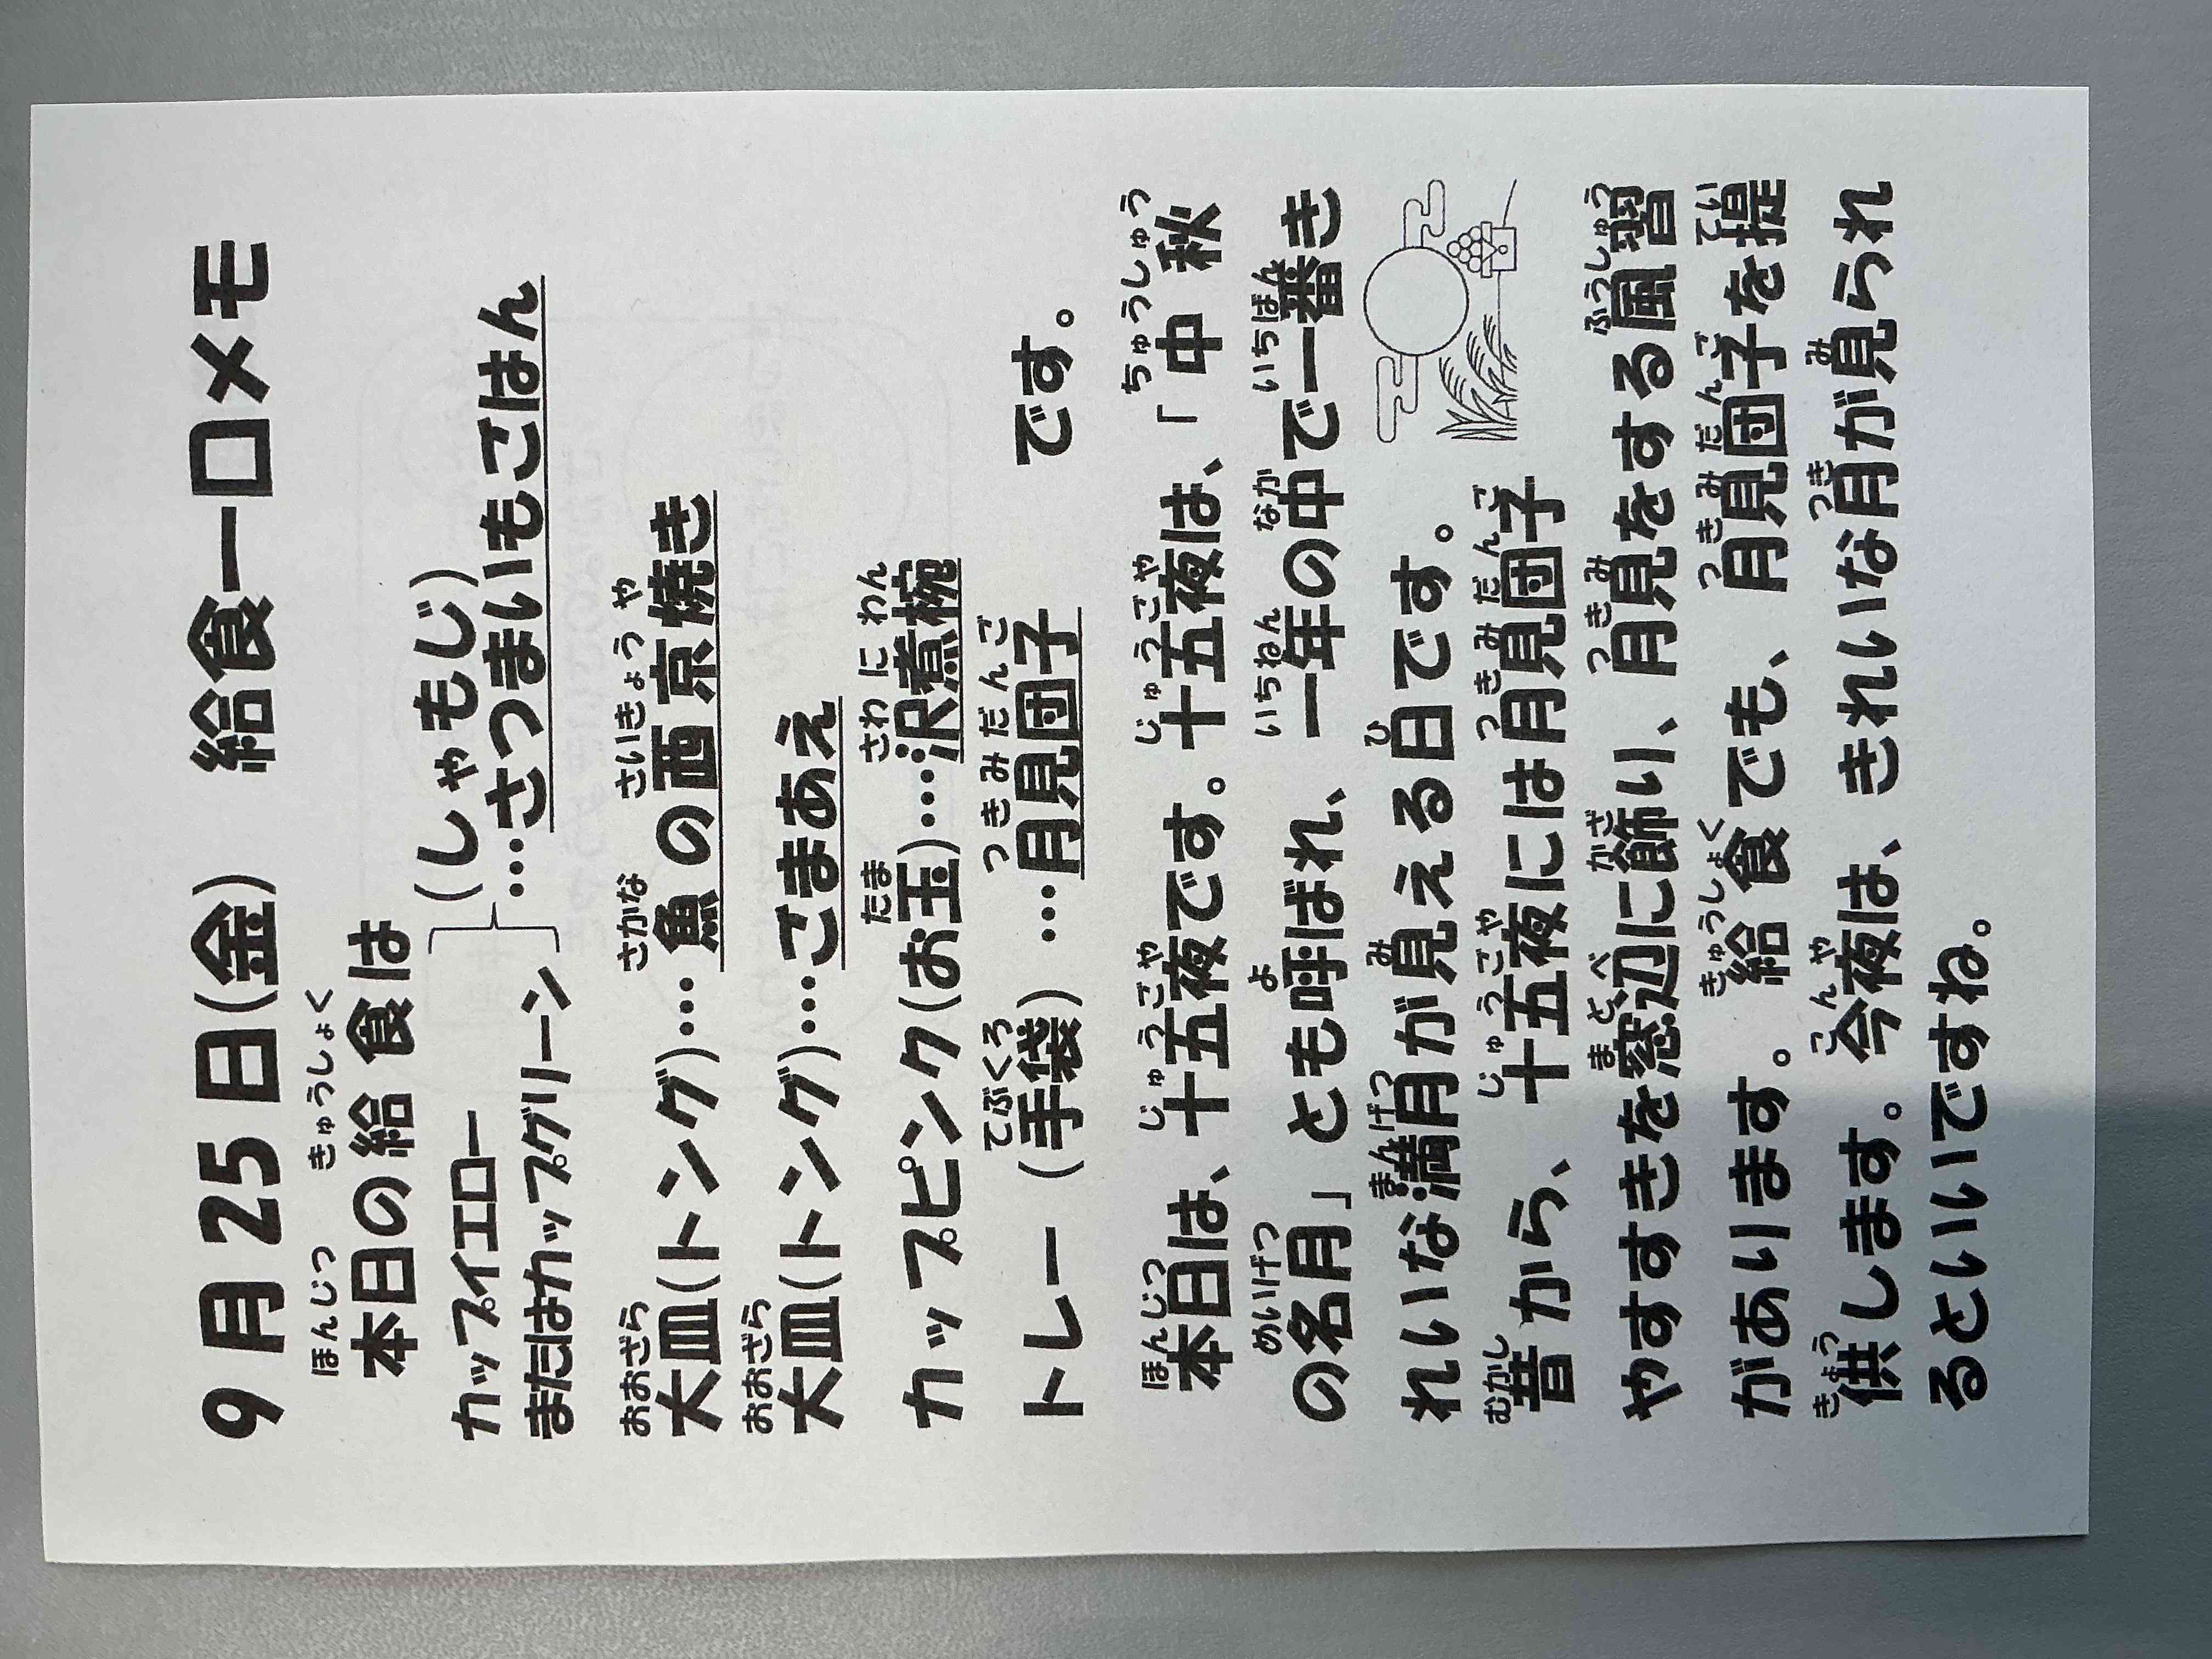 9月25日(金) 給食一口メモ
本日の給食は
カップイエロー
またはカップグリーン
(しゃもじ)
…さつまいもごはん
大皿(トング)…魚の西京焼き
大皿(トング)…ごまあえ
カップピンク(お玉)…沢煮椀
トレー(手袋)…月見団子 です。
本日は、十五夜です。十五夜は、「中秋
の名月」とも呼ばれ、一年の中で一番き
れいな満月が見える日です。
昔から、十五夜には月見団子
やすすきを窓辺に飾り、月見をする風習
があります。給食でも、月見団子を提
供します。今夜は、きれいな月が見られ
るといいですね。